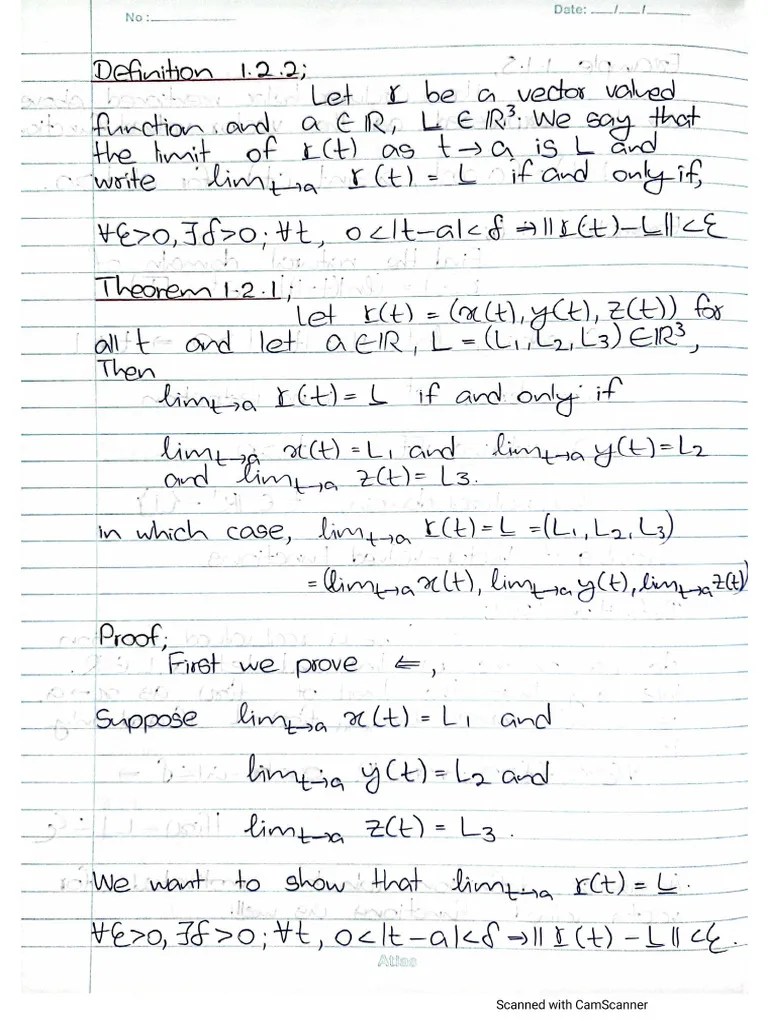 No :
Date: __/__/__
Definition 1.2.2;
Let r be a vector valued
function and a ∈ ℝ, L ∈ ℝ³. We say that
the limit of r(t) as t→a is L and
write lim_{t→a} r(t) = L if and only if,
∀ε>0, ∃δ>0; ∀t, 0<|t-a|<δ ⇒ ||r(t)-L||<ε
Theorem 1.2.1;
Let r(t) = (x(t), y(t), z(t)) for
all t and let a ∈ ℝ, L = (L₁, L₂, L₃) ∈ ℝ³,
Then
lim_{t→a} r(t) = L if and only if
lim_{t→a} x(t) = L₁ and lim_{t→a} y(t) = L₂
and lim_{t→a} z(t) = L₃.
in which case, lim_{t→a} r(t) = L = (L₁, L₂, L₃)
= (lim_{t→a} x(t), lim_{t→a} y(t), lim_{t→a} z(t))
Proof;
First we prove ⇐,
Suppose lim_{t→a} x(t) = L₁ and
lim_{t→a} y(t) = L₂ and
lim_{t→a} z(t) = L₃.
We want to show that lim_{t→a} r(t) = L.
∀ε>0, ∃δ>0; ∀t, 0<|t-a|<δ ⇒ ||r(t) - L|| <ε.
Atlas
Scanned with CamScanner